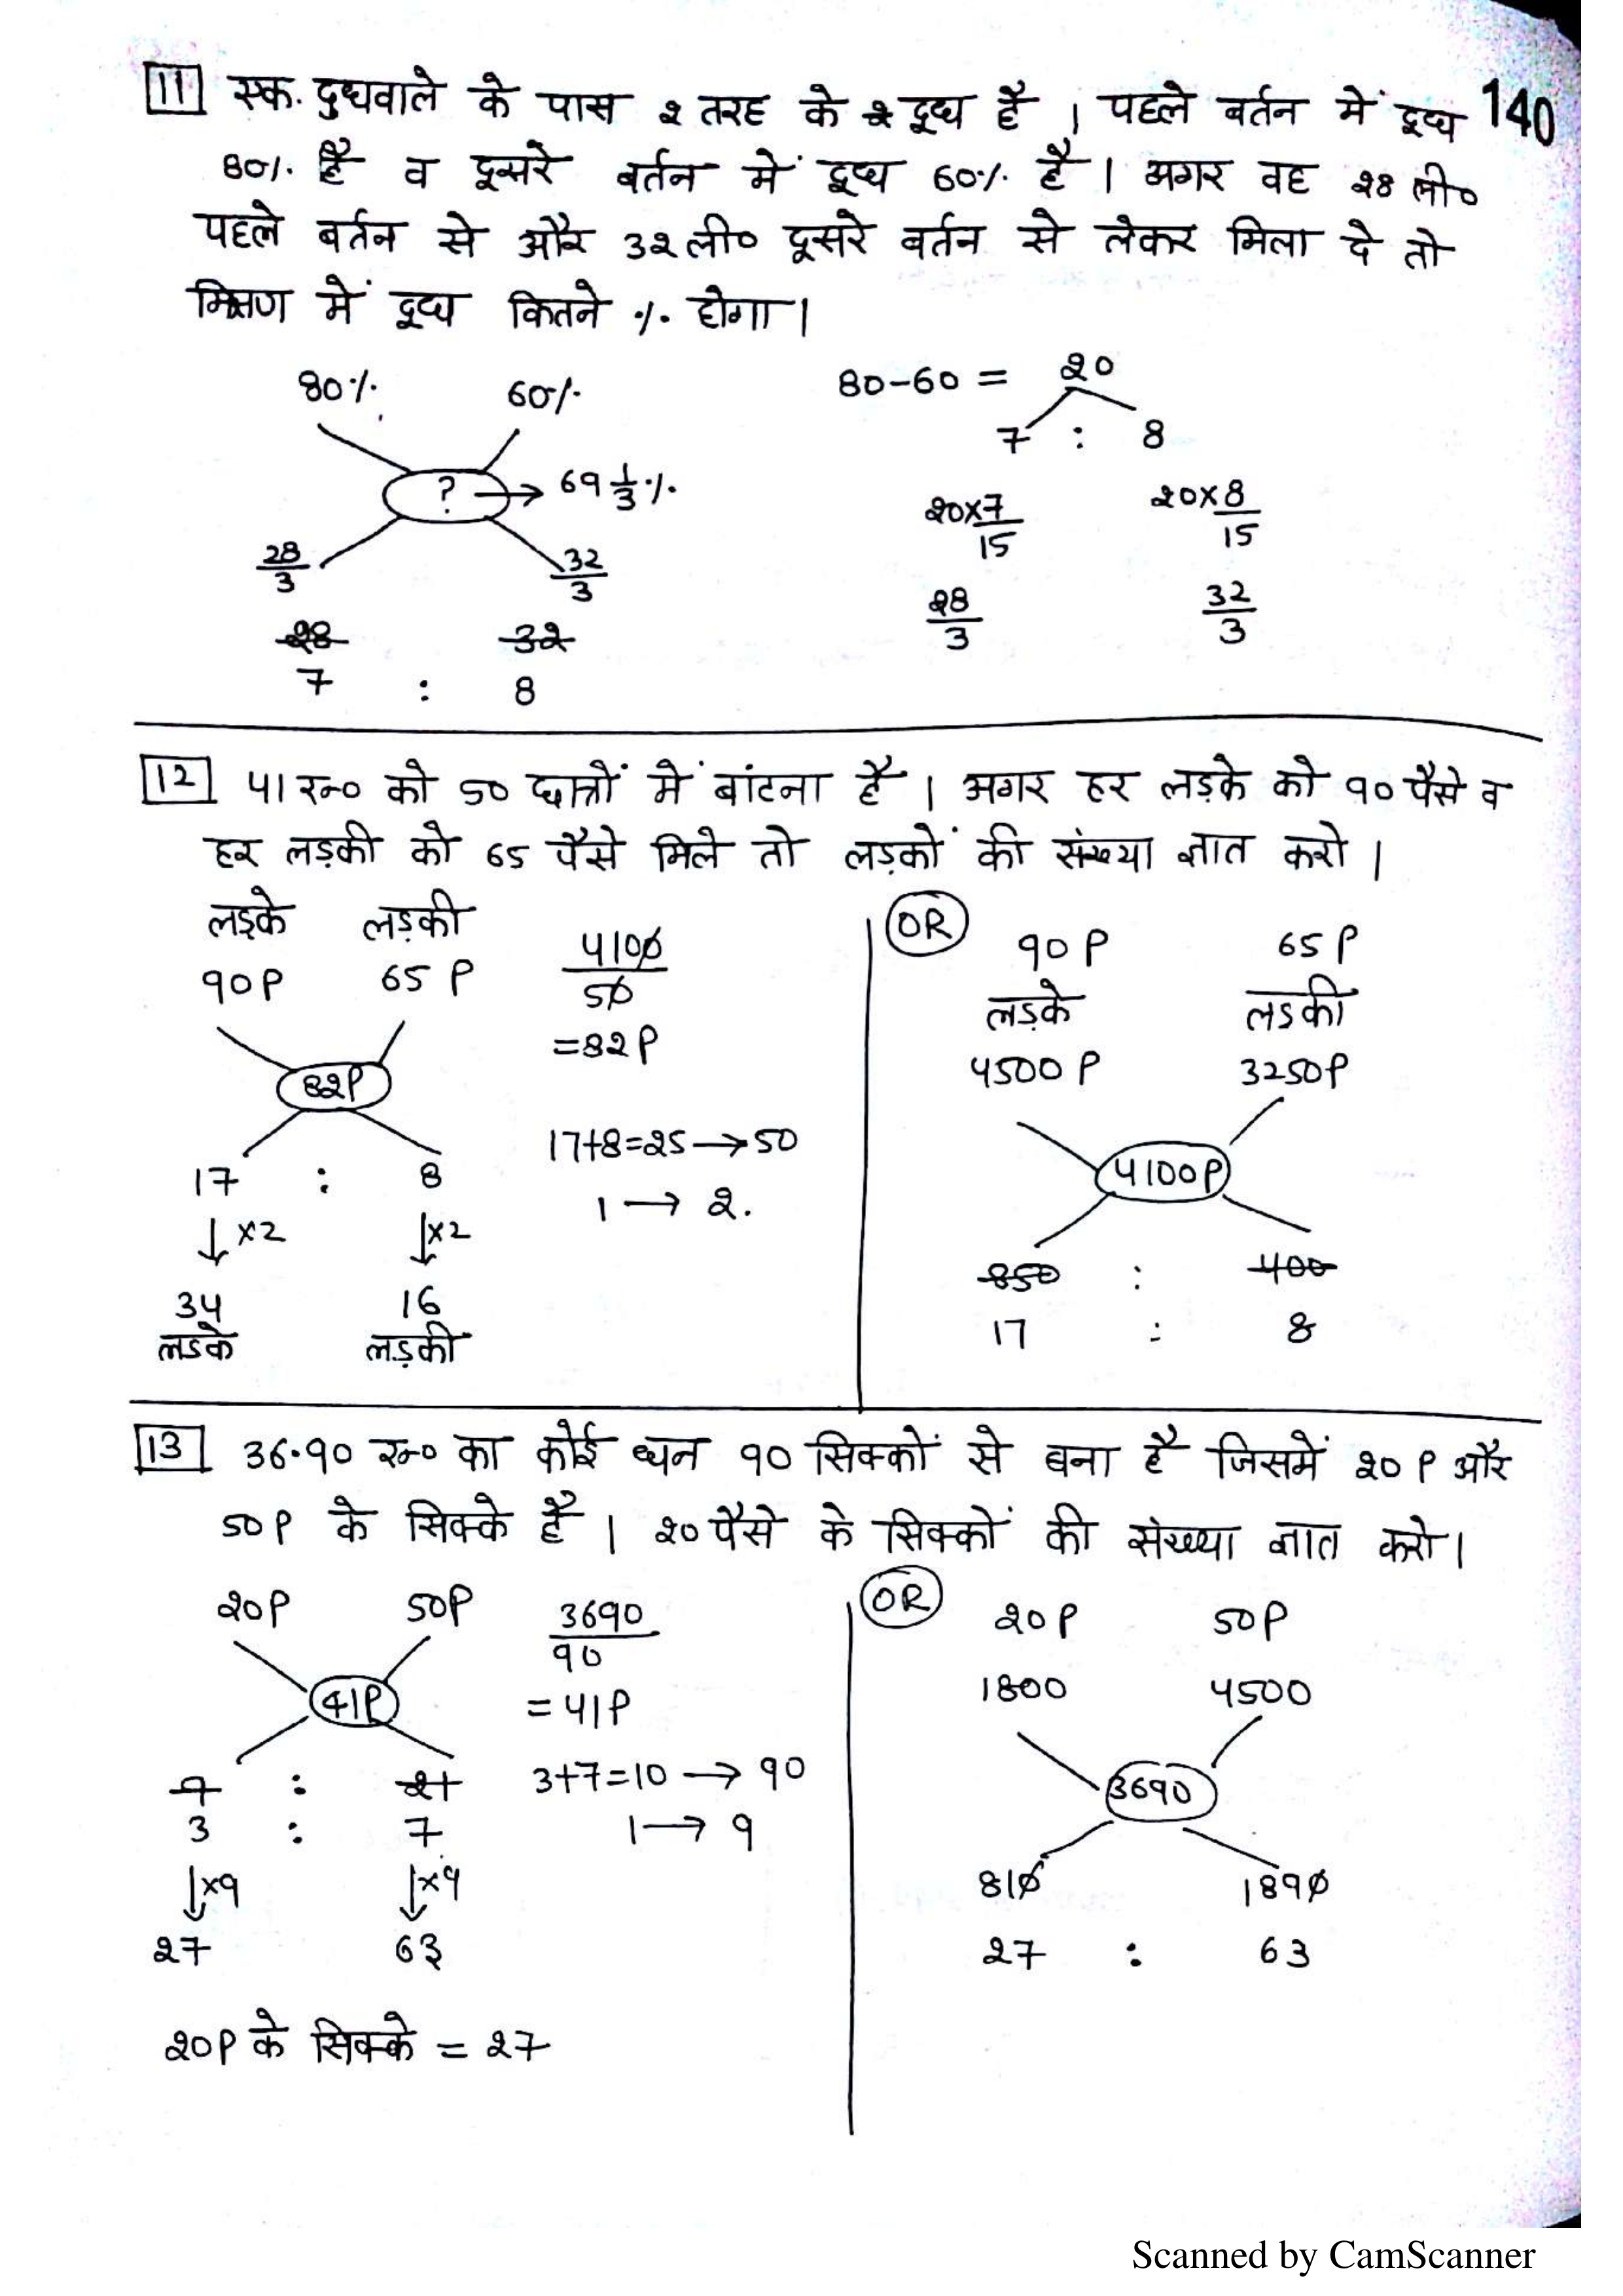 11 एक. दुधवाले के पास 2 तरह के दूध है । पहले बर्तन में दूध 140
80% है व दूसरे बर्तन में दूध 60% है । अगर वह 28 ली०
पहले बर्तन से और 32 ली० दूसरे बर्तन से लेकर मिला दे तो
मिश्रण में दूध कितने % होगा ।
80% 60% 80-60 = 20
7 : 8
? → 69 1/3 %
20×7/15 20×8/15
28/3 32/3
28/3 32/3
28 32
7 : 8
12 41 रू० को 50 छात्रों में बांटना है । अगर हर लड़के को 90 पैसे व
हर लड़की को 65 पैसे मिले तो लड़कों की संख्या ज्ञात करो ।
लड़के लड़की
90P 65P
4100/50
=82P
82P
17+8=25→50
17 : 8
1→2.
↓×2 ↓×2
34 16
लडके लड़की
OR
90P 65P
लड़के लडकी
4500P 3250P
4100P
850 : 400
17 : 8
13 36.90 रू० का कोई धन 90 सिक्कों से बना है जिसमें 20P और
50P के सिक्के है । 20 पैसे के सिक्कों की संख्या ज्ञात करो ।
20P 50P
3690/90
41P
=41P
9 : 21
3+7=10→90
3 : 7
1→9
↓×9 ↓×9
27 63
20P के सिक्के = 27
OR
20P 50P
1800 4500
3690
810 1890
27 : 63
Scanned by CamScanner